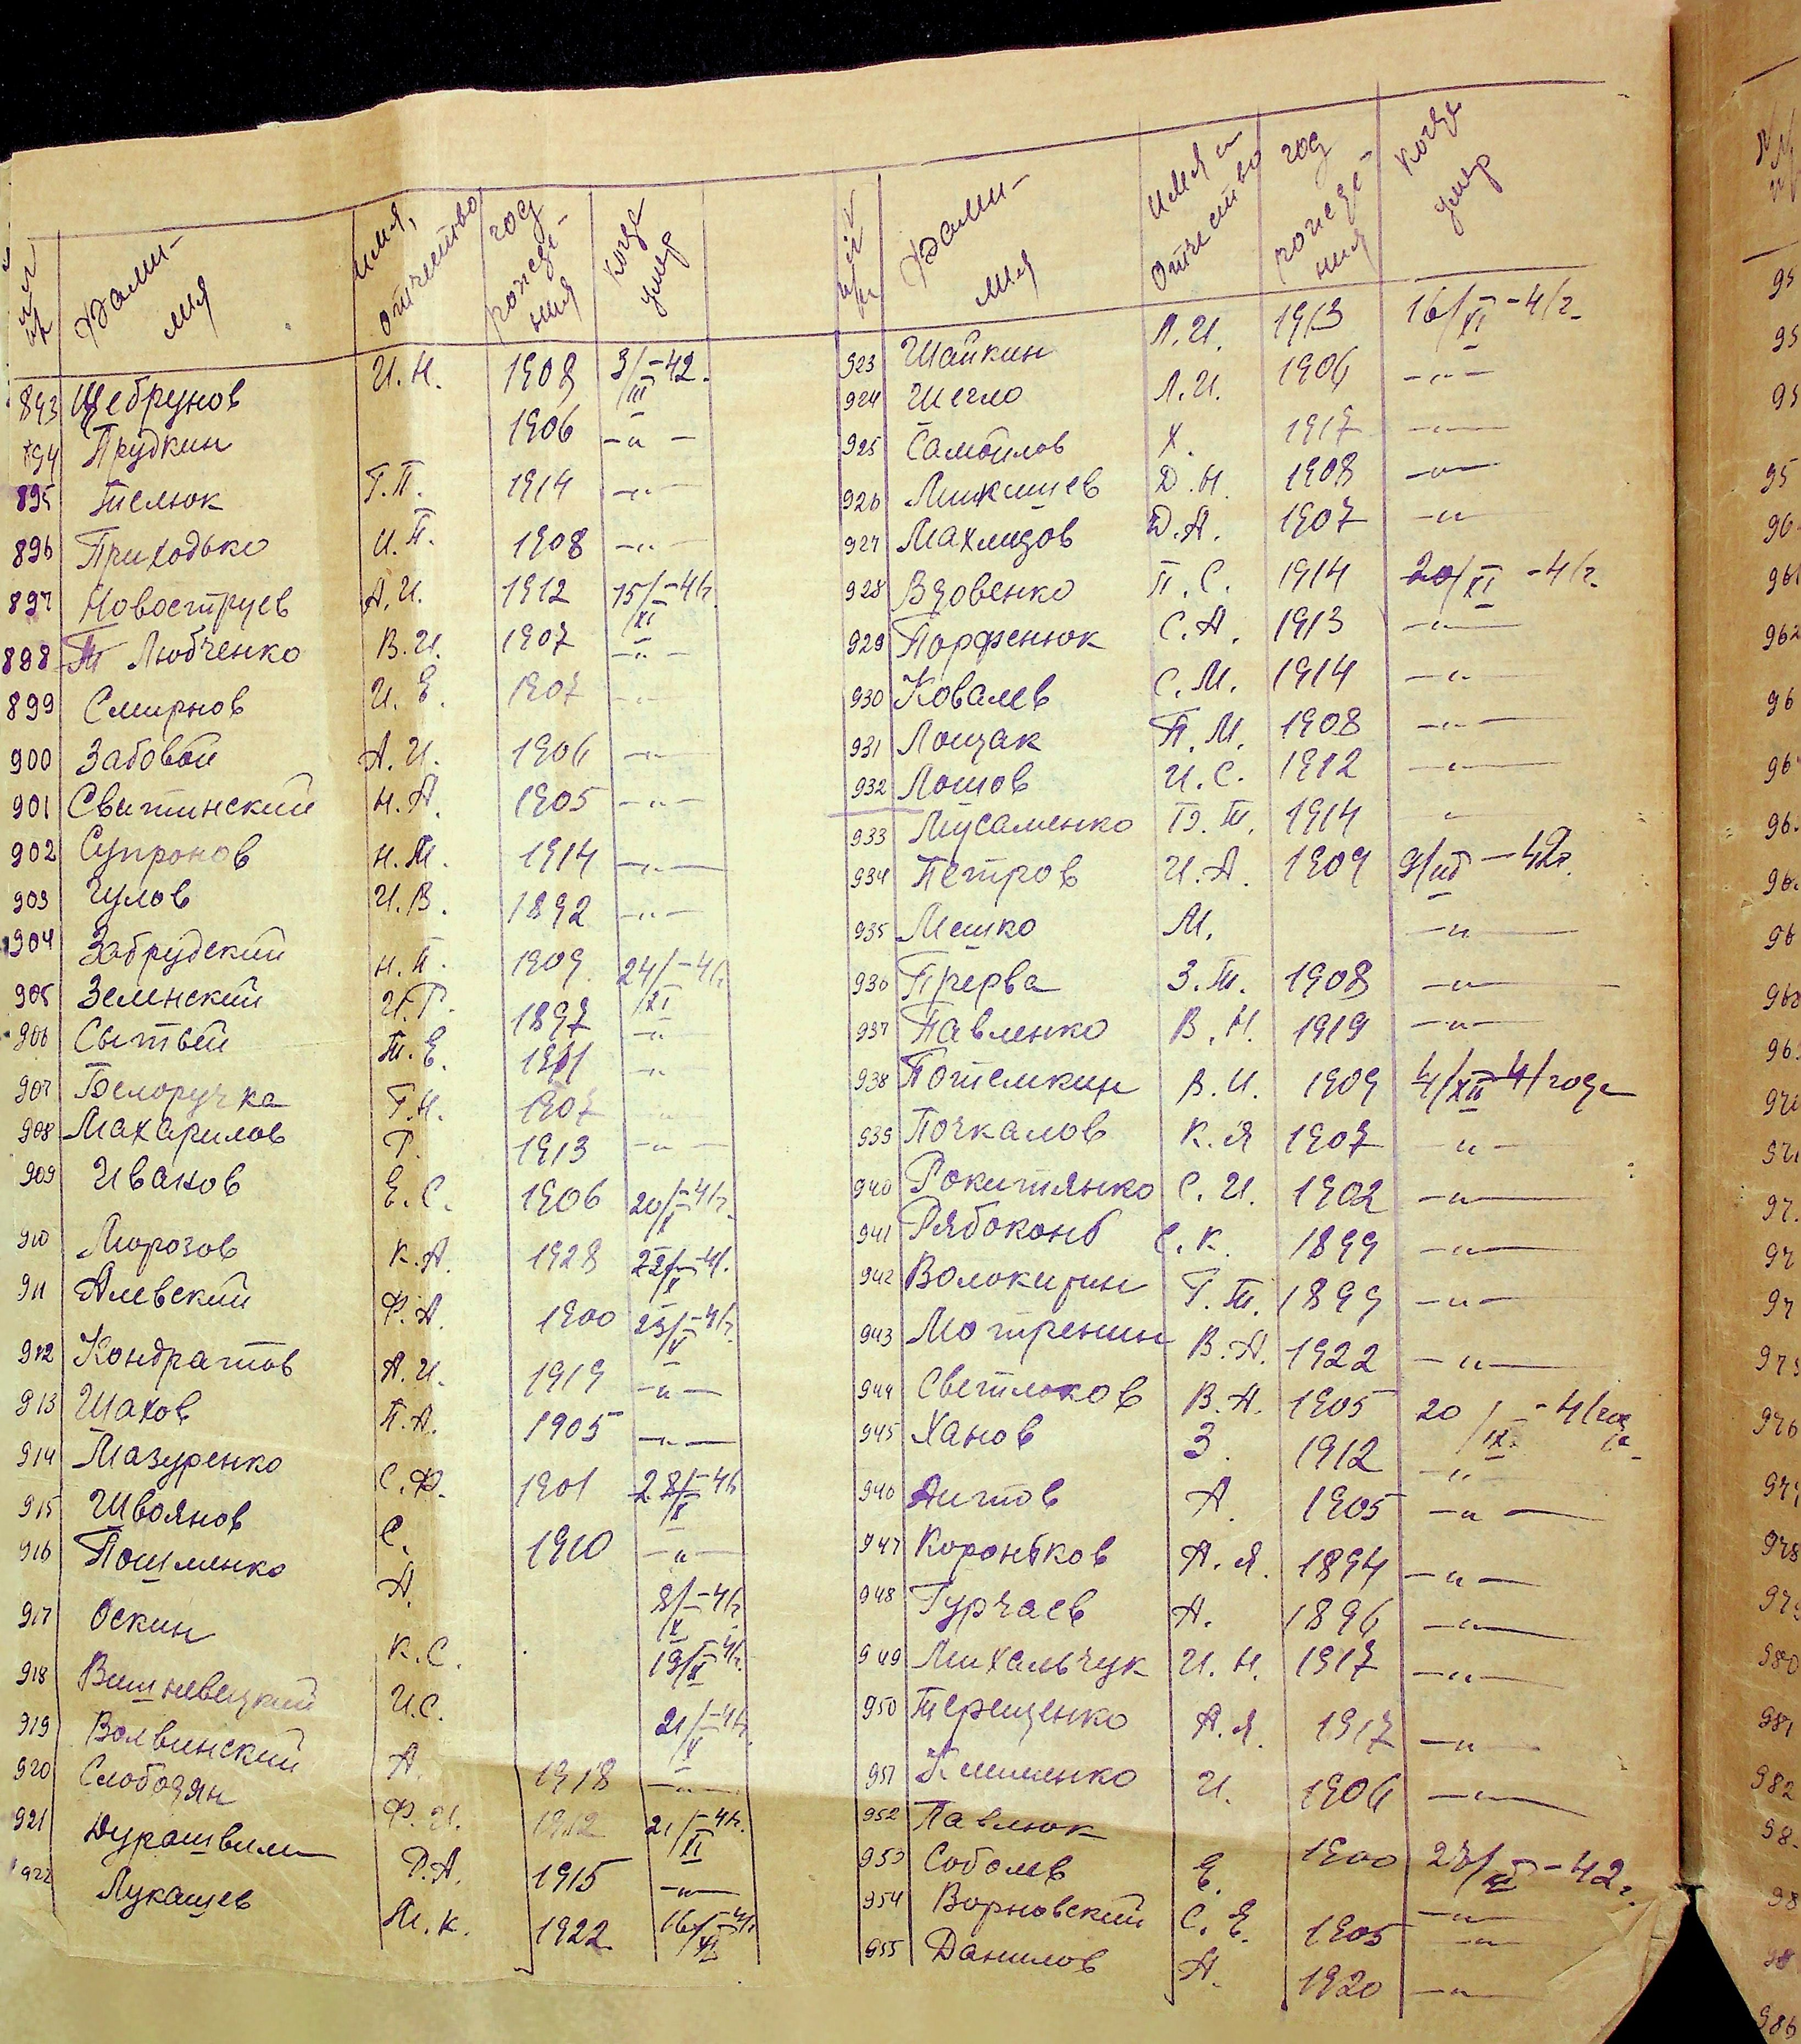 №№ п/п Фами-лия имя, отчество год рожде-ния когда умер
893 Щебрунов И.Н. 1908 3/III-42.
894 Прудкин 1906 -"-
895 Телюк Г.П. 1914 -"-
896 Приходько И.П. 1908 -"-
897 Новоструев А.И. 1912 15/XI-41г.
898 Любченко В.И. 1907 -"-
899 Смирнов И.Е. 1907 -"-
900 Забовой А.И. 1906 -"-
901 Свитинский Н.А. 1905 -"-
902 Супронов Н.М. 1914 -"-
903 Чулов И.В. 1892 -"-
904 Забрудский Н.П. 1909 24/XI-41г.
905 Зелинский И.Г. 1897 -"-
906 Сытый Т.Е. 1911 -"-
907 Белоручка Г.Н. 1907 -"-
908 Махарилов Г. 1913 -"-
909 Иванов Е.С. 1906 20/X-41г.
910 Морозов К.А. 1928 22/X-41.
911 Алевский Ф.А. 1900 23/X-41г.
912 Кондратов А.И. 1919 -"-
913 Шахов П.А. 1905 -"-
914 Мазуренко С.Ф. 1901 28/X-41г
915 Шволнов С. 1910 -"-
916 Пошленко А. 8/X-41г.
917 Оскин К.С. 19/X-41г.
918 Вишневецкий И.С. 21/X-41г.
919 Волвинский А. 1918 -"-
920 Слободян Ф.И. 1912 21/XI-41г.
921 Дурашвили Р.А. 1915 -"-
922 Лукашев М.К. 1922 16/XI-41г.
№ п/п Фами-лия имя и отчество год рожде-ния когда умер
923 Шайкин Л.И. 1913 16/XI-41г.
924 Шегло Л.И. 1906 -"-
925 Самойлов Х. 1917 -"-
926 Микишев Д.Н. 1908 -"-
927 Махмудов Д.А. 1907 -"
928 Вдовенко П.С. 1914 20/XI-41г.
929 Порфенюк С.А. 1913 -"-
930 Ковалев С.М. 1914 -"-
931 Лощак П.М. 1908 -"-
932 Лошов И.С. 1912 -"-
933 Мусаленко Т. 1914 "
934 Петров И.А. 1909 9/III-42г.
935 Мешко М. -"-
936 Прерва З.Т. 1908 -"-
937 Павленко В.Н. 1919 -"-
938 Потемкин В.И. 1909 4/XII-41 года
939 Почкалов К.Я 1907 -"-
940 Рокитянко С.И. 1902 -"-
941 Рябоконь С.К. 1899 -"-
942 Волокитин Г.Т. 1899 -"-
943 Мотренин В.А. 1922 -"-
944 Светлоков В.А. 1905 20/IX-41 года
945 Ханов З. 1912 -"-
946 Аитов А. 1905 -"-
947 Короньков А.Я. 1894 -"-
948 Гурчаев А. 1896 -"-
949 Михальчук И.Н. 1917 -"-
950 Терещенко А.Я. 1917 -"-
951 Клименко И. 1906 -"-
952 Павлюк 1900 23/XII-42г.
953 Соболев Е. -"-
954 Ворновский С.Е. 1905 -"-
955 Данилов А. 1920 -"-